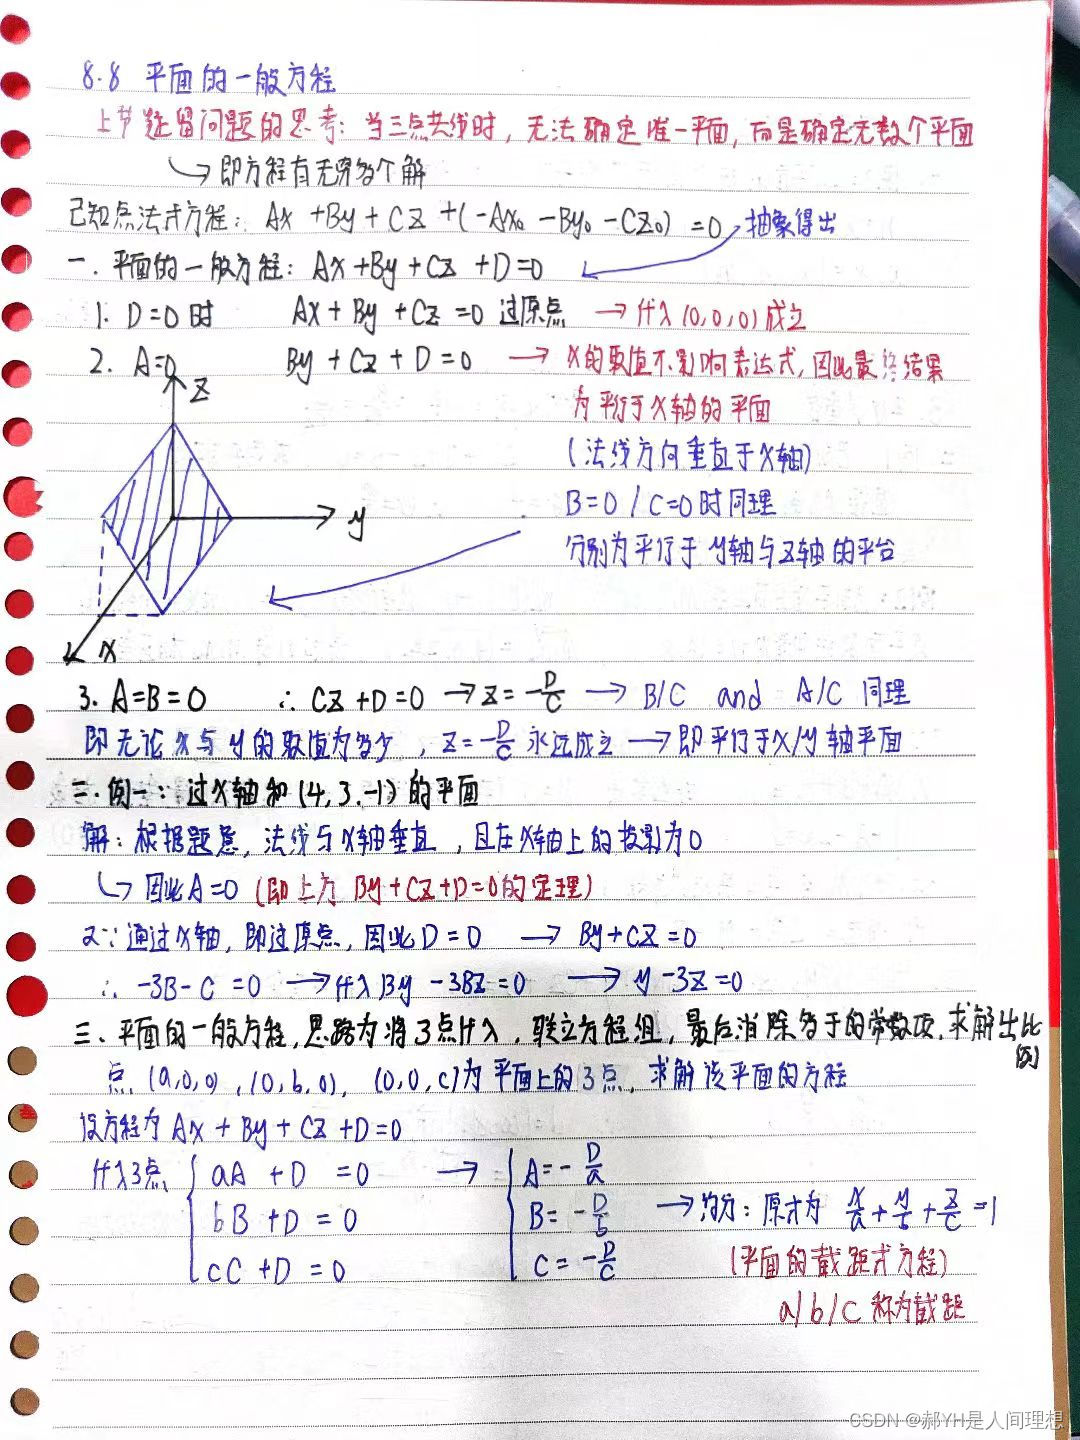 8.8 平面的一般方程
上节延留问题的思考: 当三点共线时, 无法确定唯一平面, 而是确定无数个平面
↳ 即方程有无穷多个解
已知点法式方程: Ax + By + Cz + (-Ax₀ - By₀ - Cz₀) = 0 抽象得出
一. 平面的一般方程: Ax + By + Cz + D = 0
1. D = 0 时 Ax + By + Cz = 0 过原点 → 代入 (0, 0, 0) 成立
2. A = 0 By + Cz + D = 0 → x的取值不影响表达式, 因此最终结果
为平行于x轴的平面
z
(法线方向垂直于x轴)
B = 0 / C = 0 时同理
y
分别为平行于y轴与z轴的平台
x
3. A = B = 0 ∴ Cz + D = 0 → z = -D/C → B/C and A/C 同理
即无论x与y的取值为多少, z = -D/C 永远成立 → 即平行于x/y轴平面
二. 例一: 过x轴和 (4, 3, -1) 的平面
解: 根据题意, 法线与x轴垂直, 且在x轴上的投影为0
↳ 因此A = 0 (即上方 By + Cz + D = 0的定理)
又∵通过x轴, 即过原点, 因此D = 0 → By + Cz = 0
∴ -3B - C = 0 → 代入 By - 3Bz = 0 → y - 3z = 0
三. 平面的一般方程, 思路为将3点代入, 联立方程组, 最后消除多于的常数项, 求解出比例
点 (a, 0, 0), (0, b, 0), (0, 0, c) 为平面上的3点, 求解该平面的方程
设方程为 Ax + By + Cz + D = 0
代入3点 { aA + D = 0 → { A = -D/a
bB + D = 0 B = -D/b → 约分: 原式为 x/a + y/b + z/c = 1
cC + D = 0 C = -D/C
(平面的截距式方程)
a/b/c 称为截距
CSDN @郝YH是人间理想